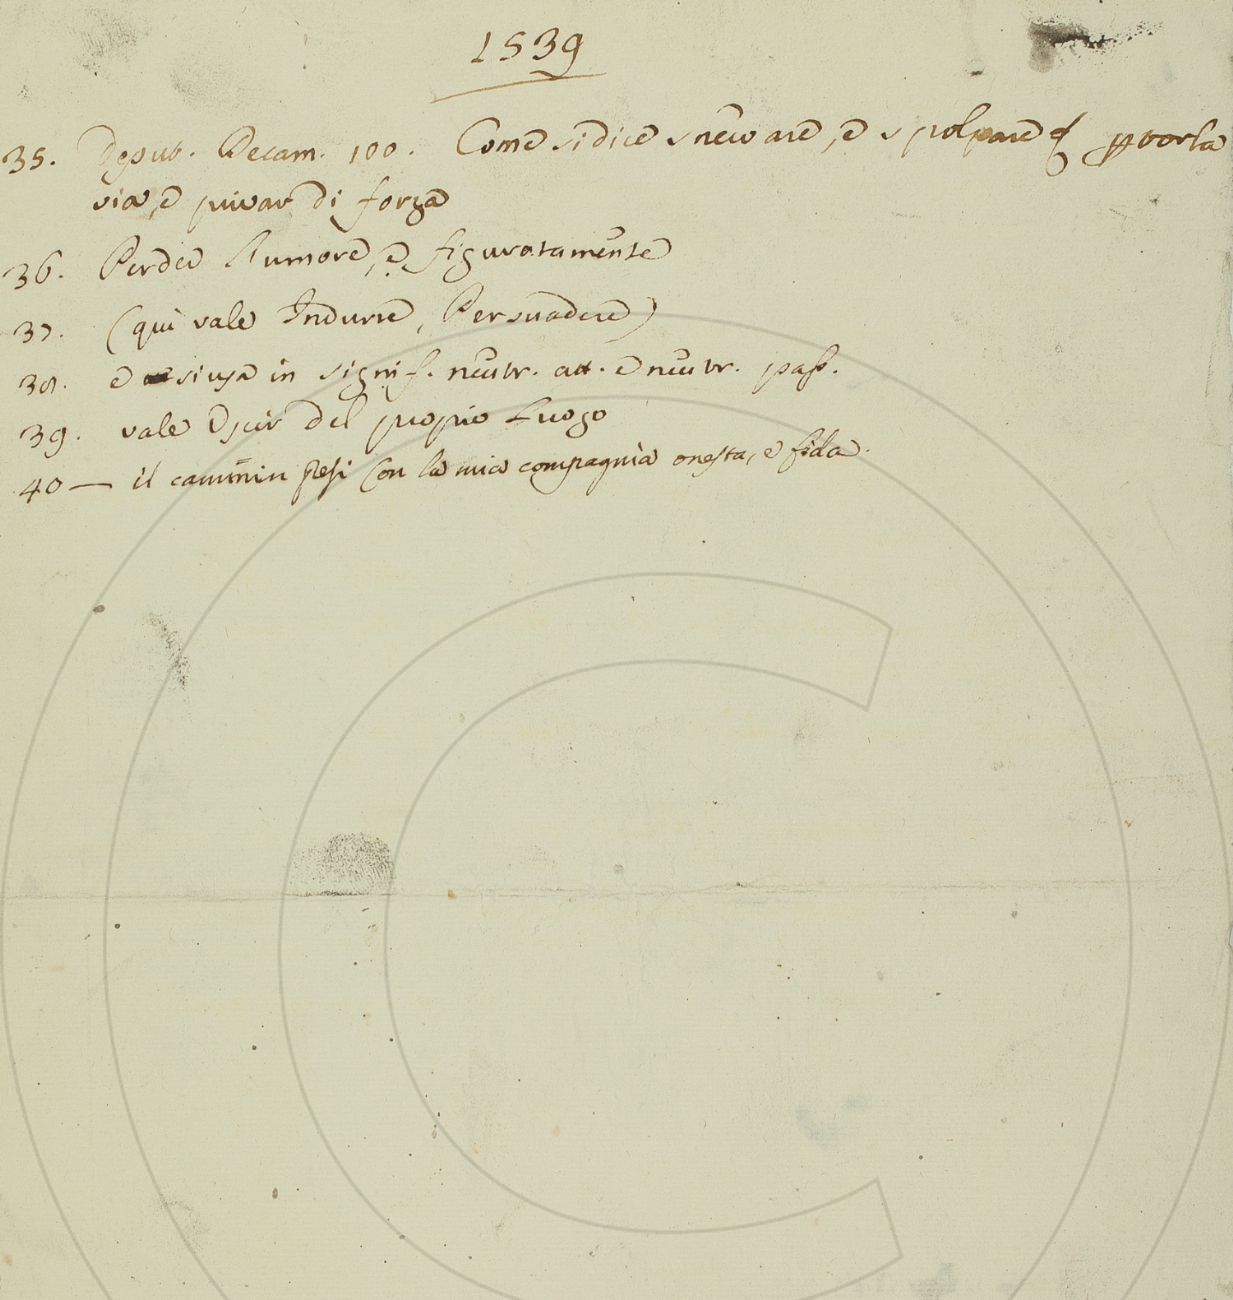 1539
35. Deput. Decam. 100. Come si dice snervare, e spolpare
via, e privar di forza
36. Perder l'umore, e figuratamente
37. (qui vale Indurre, Persuadere)
38. e si usa in signif. neutr. att. e neutr. pass.
39. vale Uscir del proprio Luogo
40 — il cammin presi Con la mia compagnia onesta, e fida.